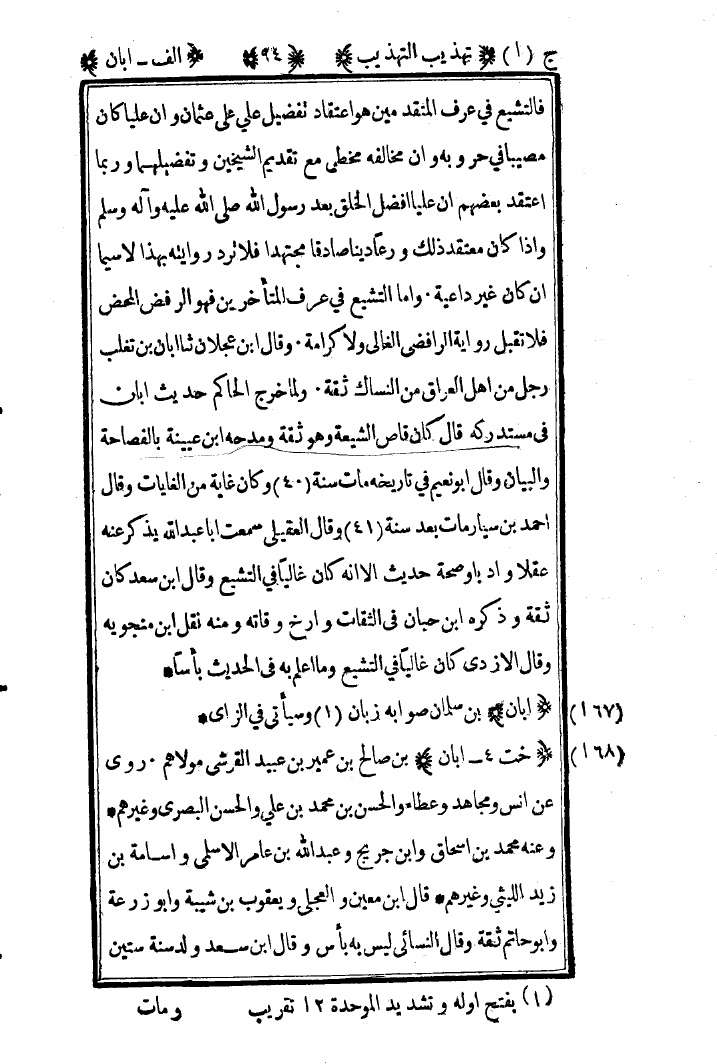 ج (١) ﴿ تهذيب التهذيب ﴾ ﴿ ٩٤ ﴾ ﴿ الف - ابان ﴾
فالتشيع في عرف المتقدمين هو اعتقاد تفضيل علي على عثمان و ان عليا كان
مصيبا في حروبه و ان مخالفه مخطئ مع تقديم الشيخين و تفضيلهما و ربما
اعتقد بعضهم ان عليا افضل الخلق بعد رسول الله صلى الله عليه و آله وسلم
و اذا كان معتقد ذلك و رعاً دينا صادقا مجتهدا فلا ترد روايته بهذا لا سيما
ان كان غير داعية ٠ و اما التشيع في عرف المتأخرين فهو الرفض المحض
فلا تقبل رواية الرافضى الغالى ولا كرامة ٠ وقال ابن عجلان ثنا ابان بن تغلب
رجل من اهل العراق من النساك ثقة ٠ ولما خرج الحاكم حديث ابان
فى مستدركه قال كان قاص الشيعة وهو ثقة و مدحه ابن عيينة بالفصاحة
والبيان وقال ابو نعيم في تاريخه مات سنة (٤٠) وكان غاية من الغايات وقال
احمد بن سيار مات بعد سنة (٤١) وقال العقيلى سمعت ابا عبد الله يذكر عنه
عقلا و ادبا و صحة حديث الا انه كان غالياً في التشيع وقال ابن سعد كان
ثقة و ذكره ابن حبان فى الثقات و ارخ و فاته و منه نقل ابن منجويه
وقال الازدى كان غالياً في التشيع وما اعلم به فى الحديث بأساً *
(١٦٧) ﴿ ابان ﴾ بن سلمان صوابه زبان (١) وسيأتى في الزاى *
(١٦٨) ﴿ خت ٤ - ابان ﴾ بن صالح بن عمير بن عبيد القرشى مولاهم ٠ روى
عن انس و مجاهد و عطاء والحسن بن محمد بن علي والحسن البصرى وغيرهم *
و عنه محمد بن اسحاق وابن جريج و عبد الله بن عامر الاسلمى و اسامة بن
زيد الليثي وغيرهم * قال ابن معين و العجلى و يعقوب بن شيبة وابو زرعة
وابو حاتم ثقة وقال النسائى ليس به بأس و قال ابن سعد ولد سنة ستين
(١) بفتح اوله و تشديد الموحدة ١٢ تقريب و مات